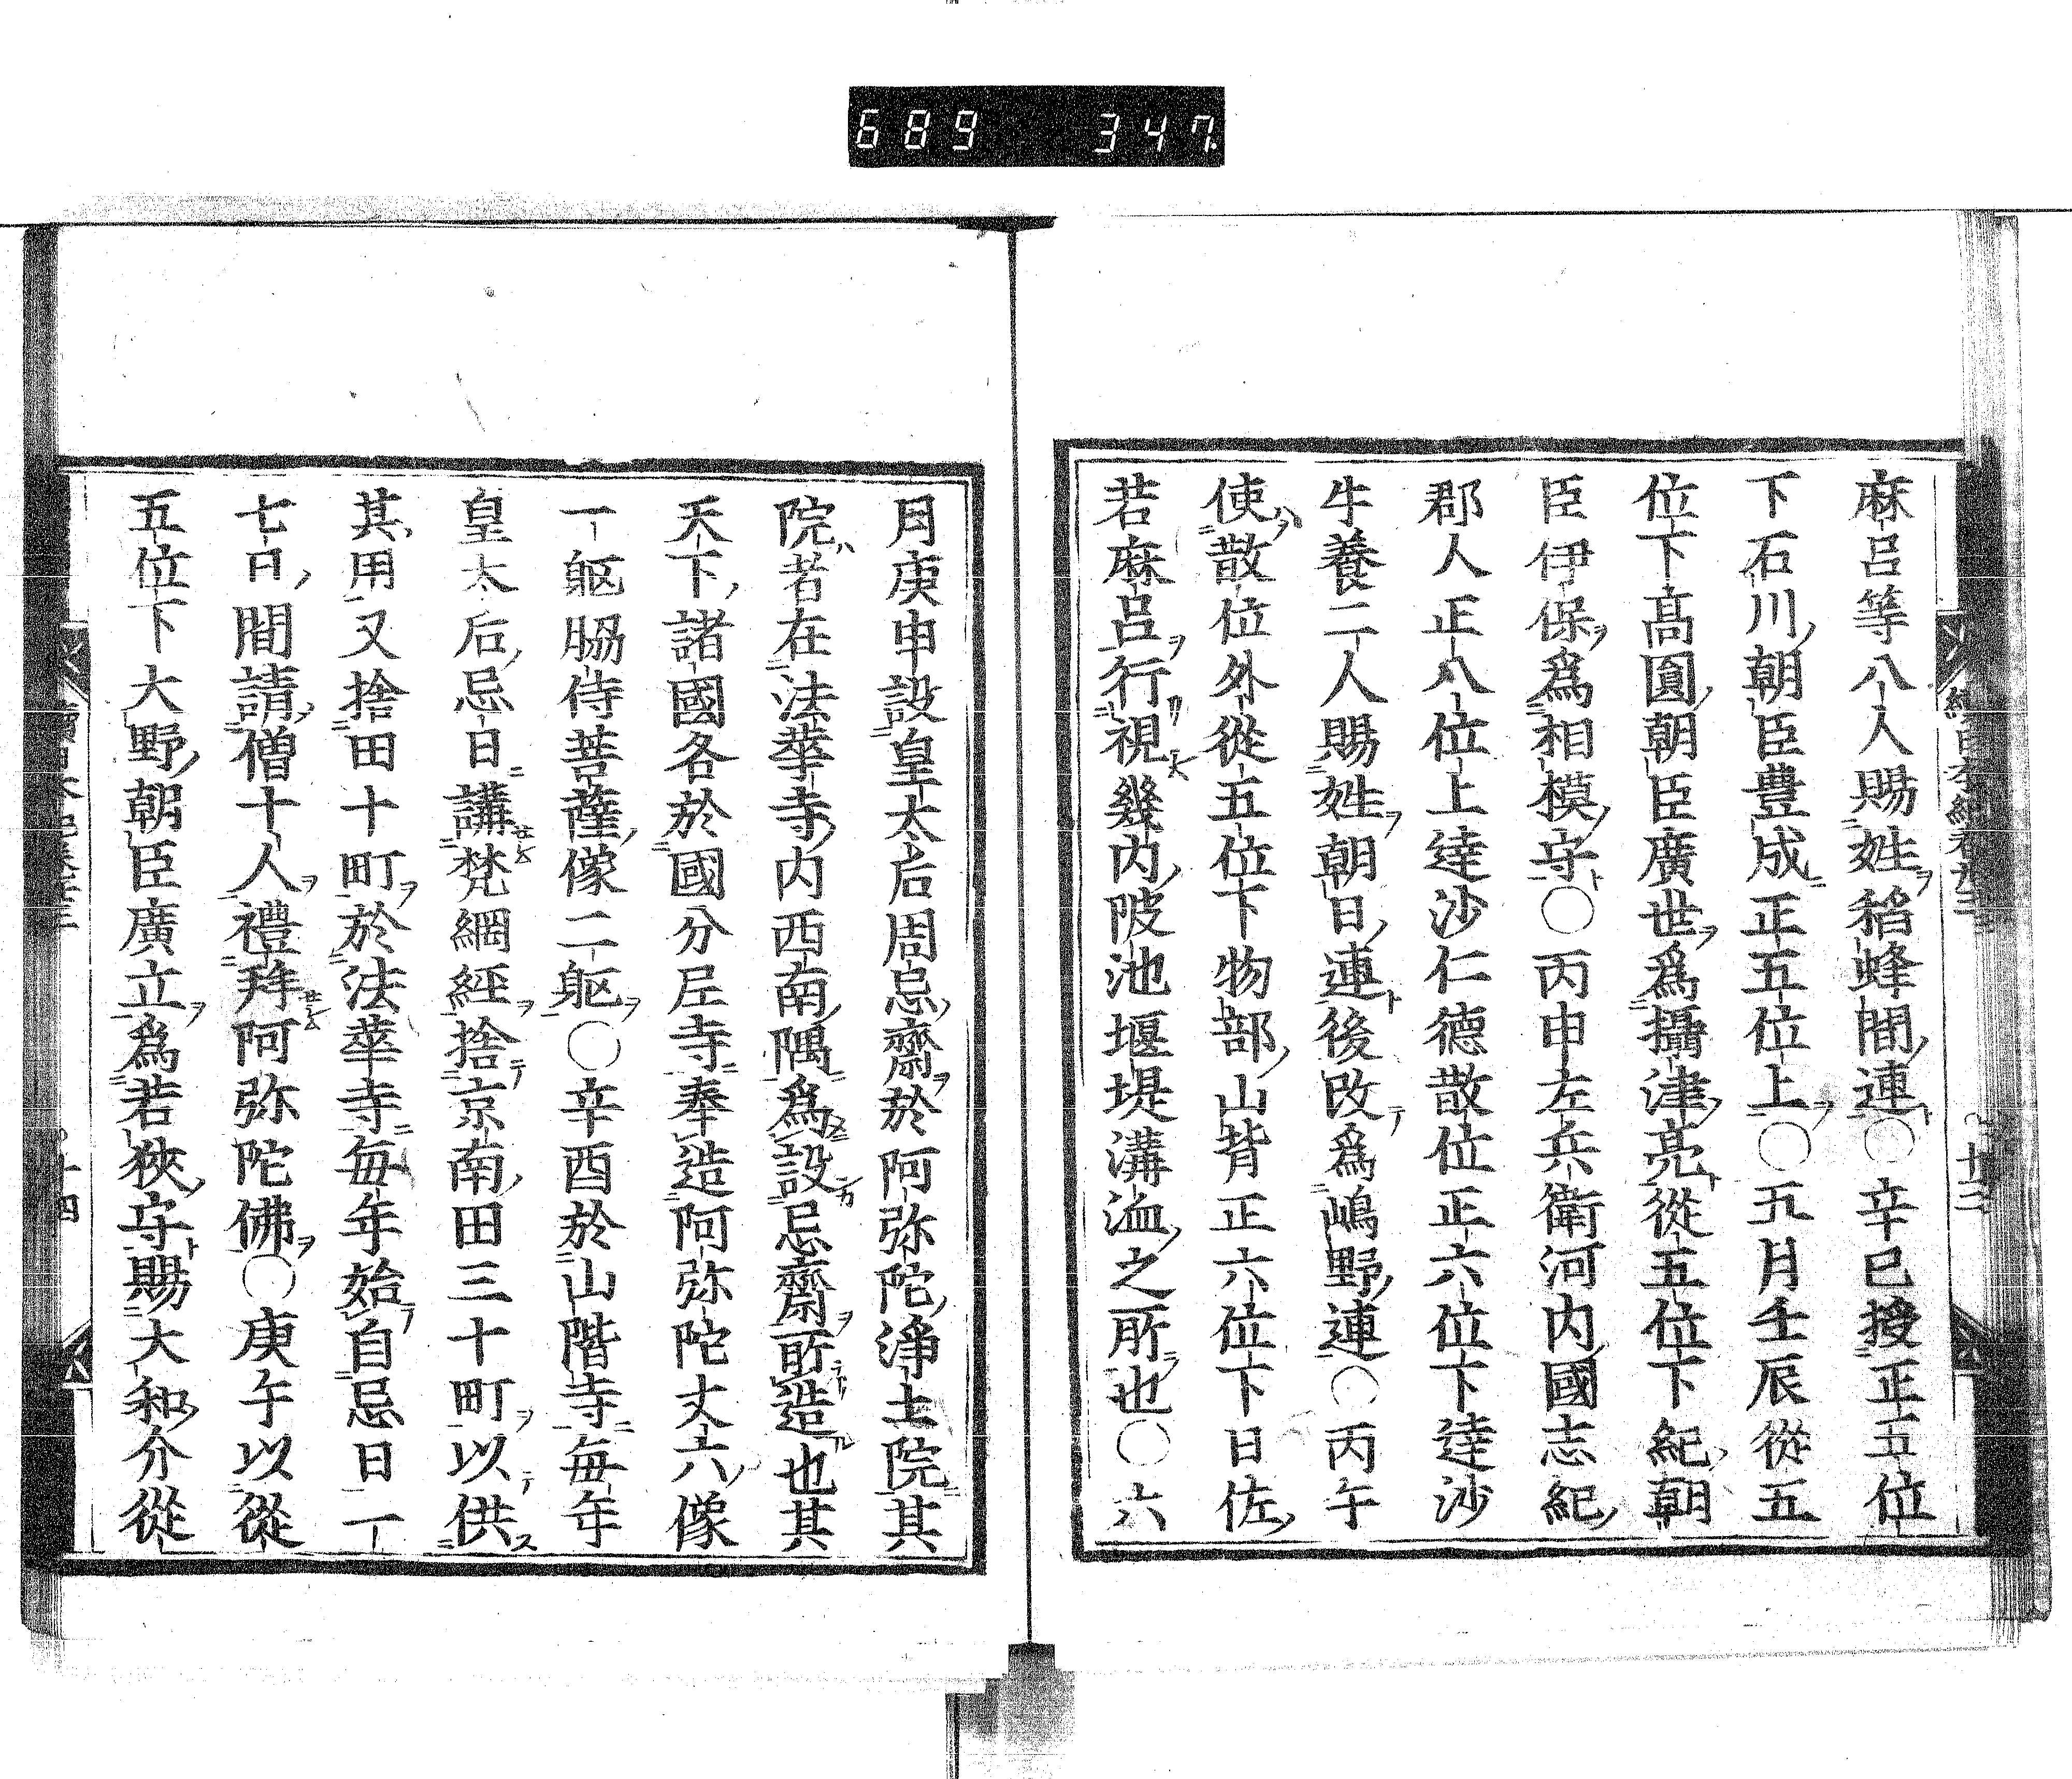 689 347
麻呂等八人賜姓稻蜂間連○辛巳授正五位
下石川朝臣豊成正五位上○五月壬辰從五
位下髙圓朝臣廣世爲攝津亮從五位下紀朝
臣伊保爲相模守○丙申左兵衛河内國志紀
郡人正八位上達沙仁德散位正六位下達沙
牛養二人賜姓朝日連後改爲嶋野連○丙午
使散位外從五位下物部山背正六位下日佐
若麻呂行視幾内陂池堰堤溝洫之所也○六
月庚申設皇太后周忌齋於阿弥陀淨土院其
院者在法華寺内西南隅爲設忌齋所造也其
天下諸國各於國分尼寺奉造阿弥陀丈六像
一躯脇侍菩薩像二躯○辛酉於山階寺毎年
皇太后忌日講梵網經捨京南田三十町以供
其用又捨田十町於法華寺毎年始自忌日一
七日間請僧十人禮拜阿弥陀佛○庚午以從
五位下大野朝臣廣立爲若狹守賜大和介從